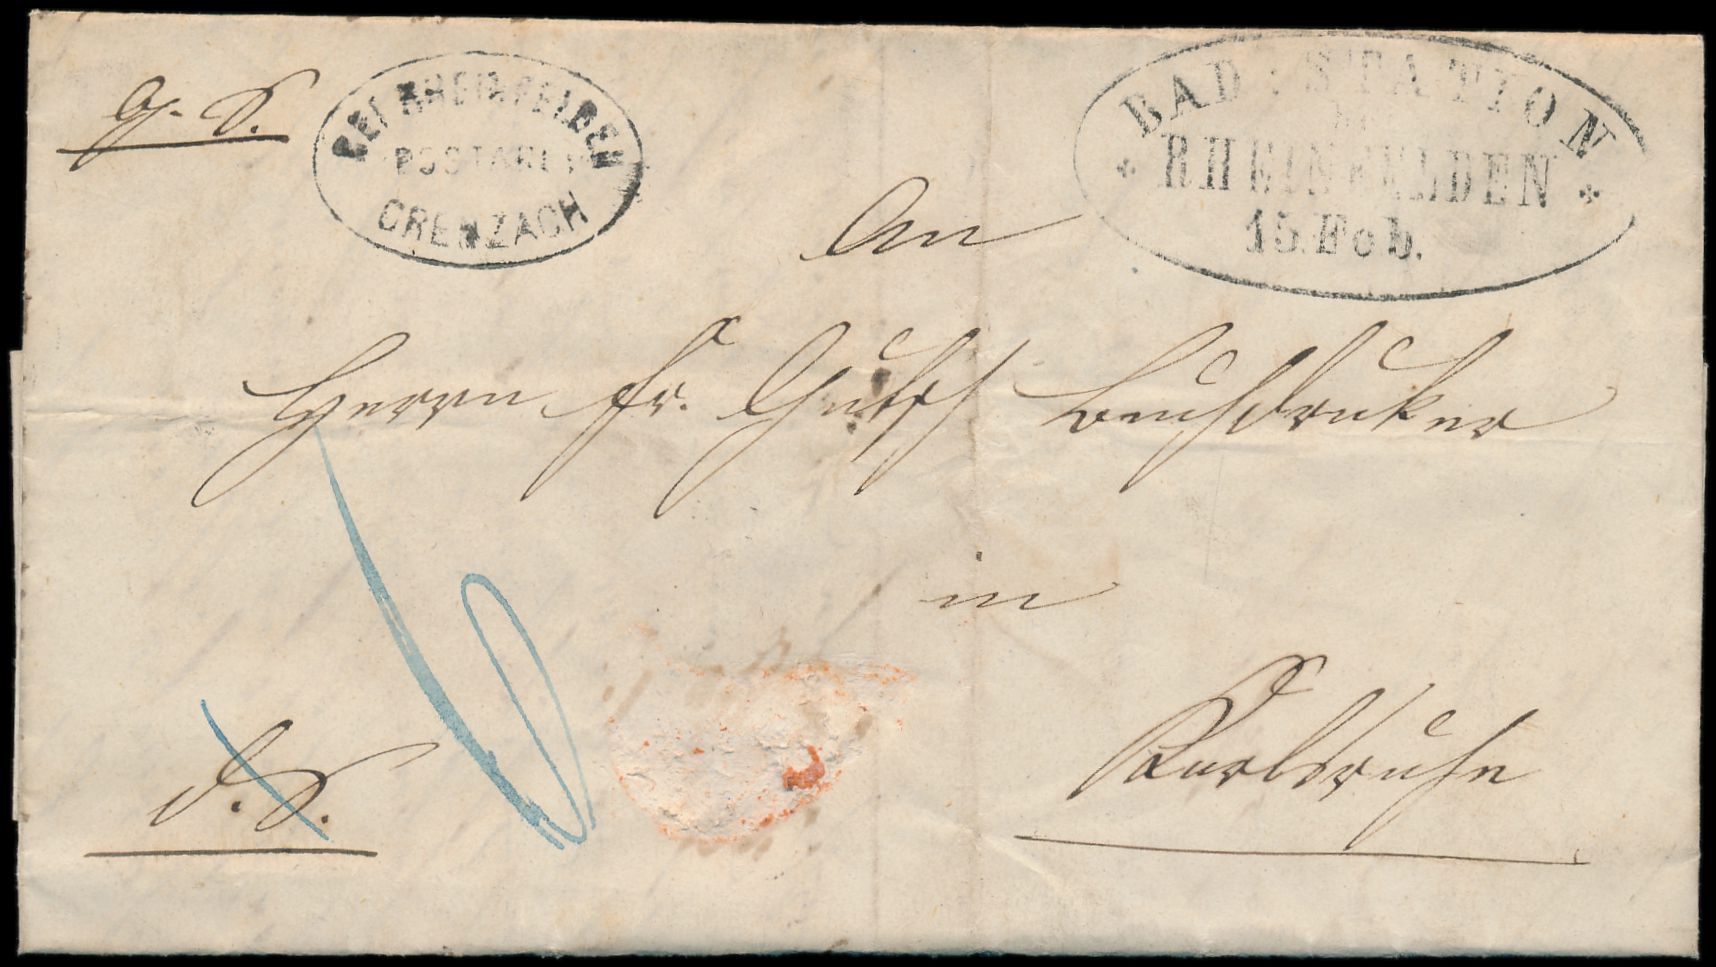 g. S.
BEI RHEINFELDEN
POSTABL.
GRENZACH
BAD. STATION
bei
RHEINFELDEN
15. Feb.
An
Herrn Fr. Gutsch Buchdruker
in
Karlsruhe
d. S.